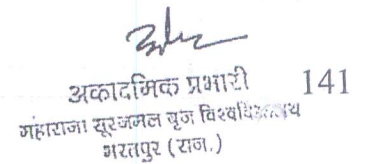 अकादमिक प्रभारी 141
महाराजा सूरजमल बृज विश्वविद्यालय
भरतपुर (राज.)